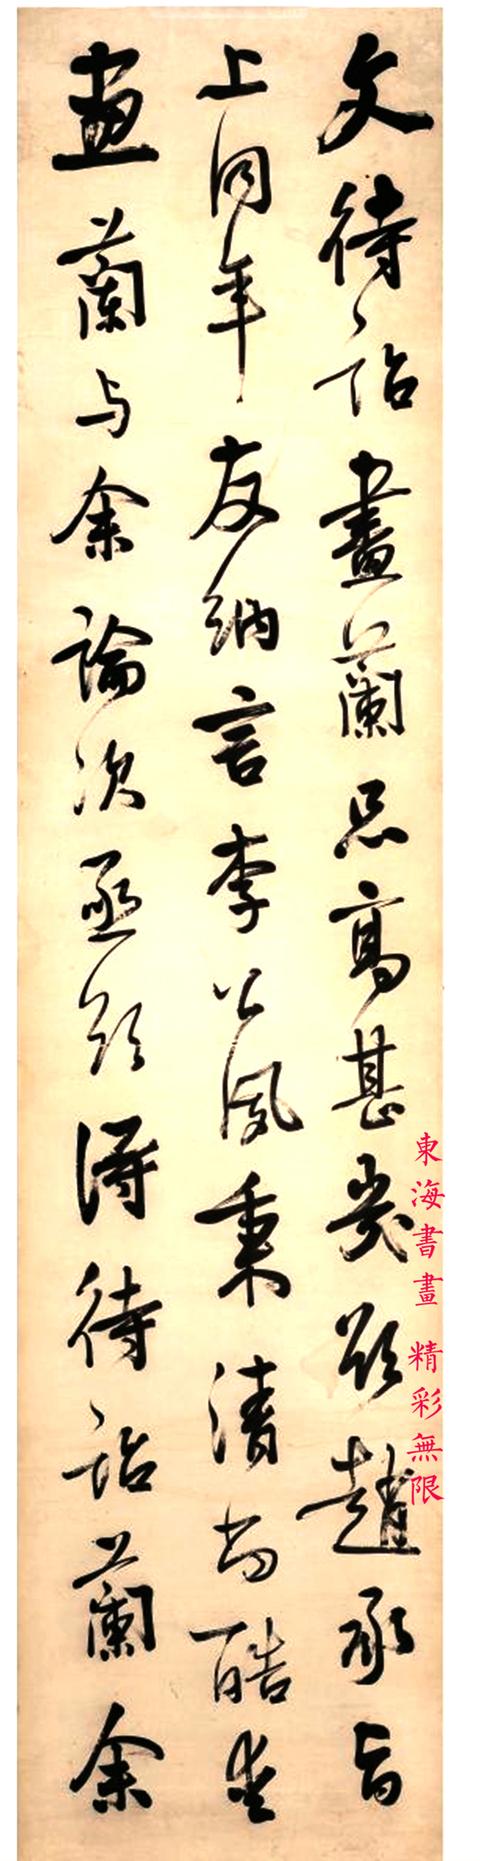 文待詔畫蘭品高甚幾欲趙承旨
上同年友納言李公夙秉清尚酷愛
畫蘭与余論次亟欲得待詔蘭余
東海書畫 精彩無限